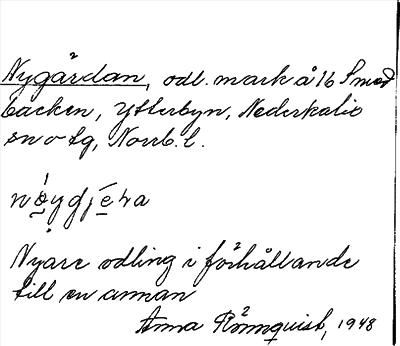 Nygärdan, odl. mark å 16 Smed
backen, Ytterbyn, Nederkalix
sn o tg, Norrb. l.
nøygjera
Nyare odling i förhållande
till en annan
Anna Rönnquist, 1948